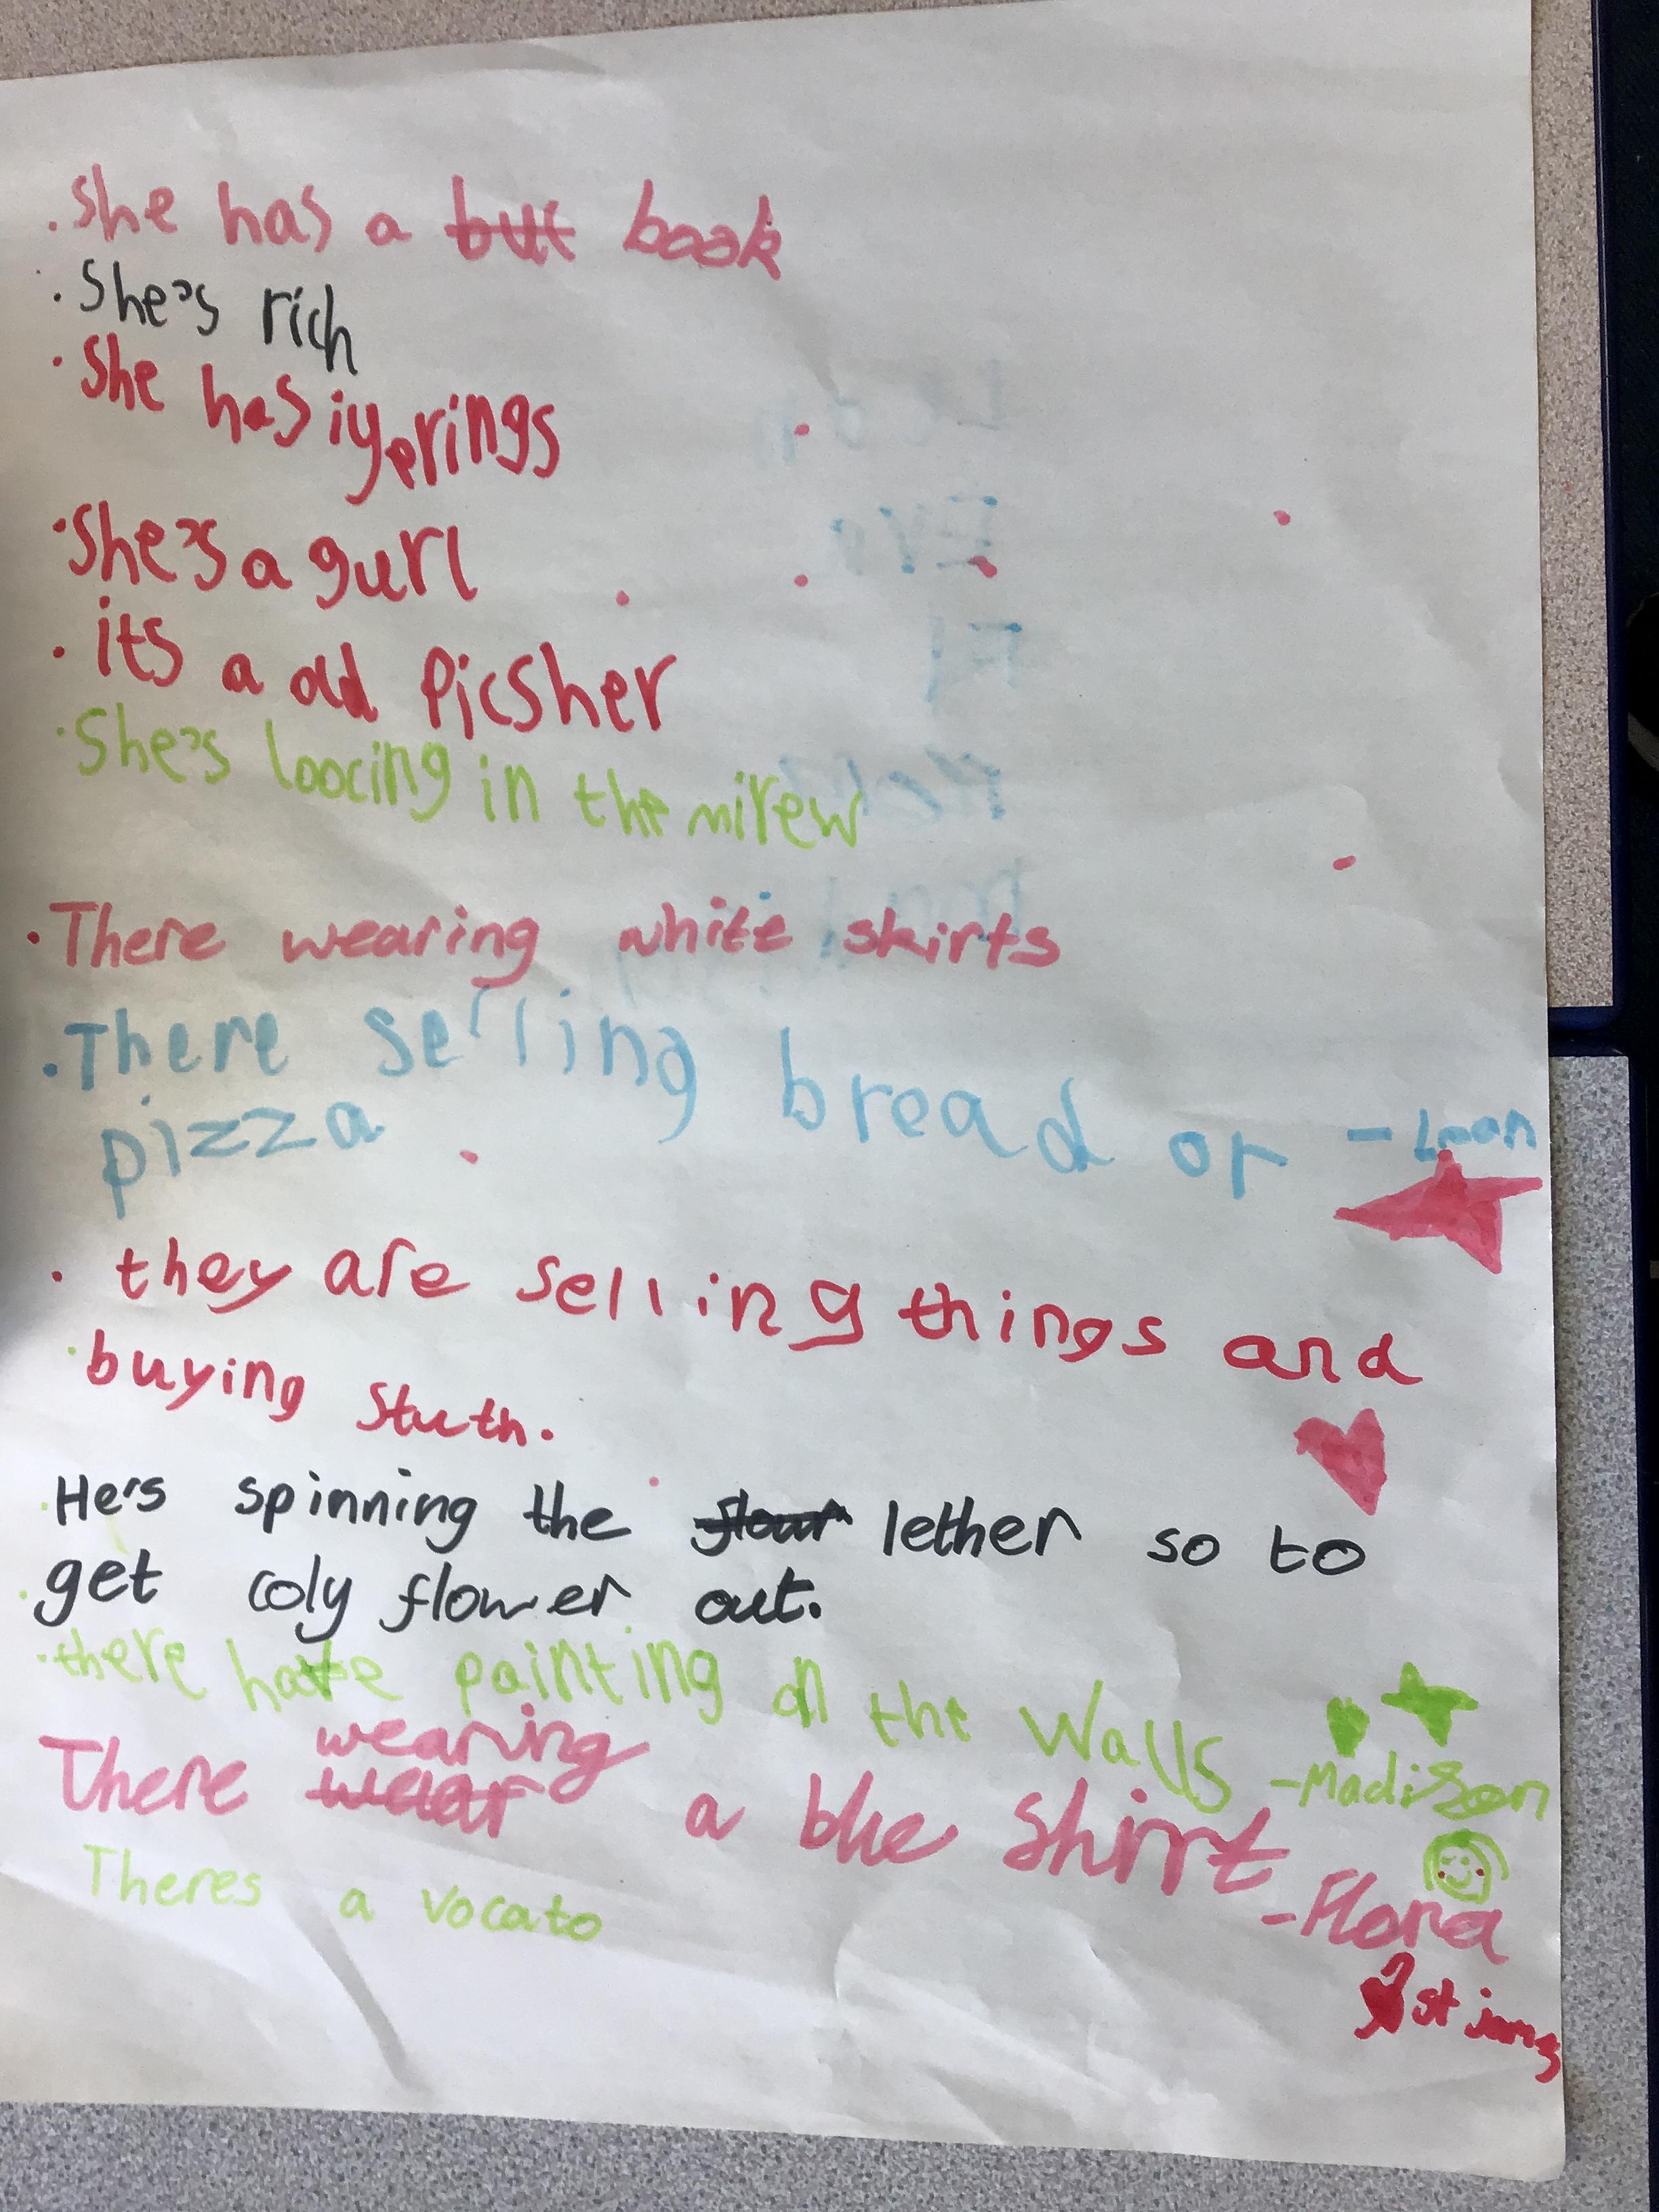 . She has a but book
. She's rich
. She has iyerings
. She's a gurl
. its a old picsher
. She's loocing in the mirew
. There wearing white skirts
. There selling bread or - Lean
pizza
. they are selling things and
. buying stuth.
. He's spinning the flour lether so to
. get coly flower out.
. there have painting on the walls - Madison
wearing
There wear a blue shirt - Flora
Theres a vocato
st